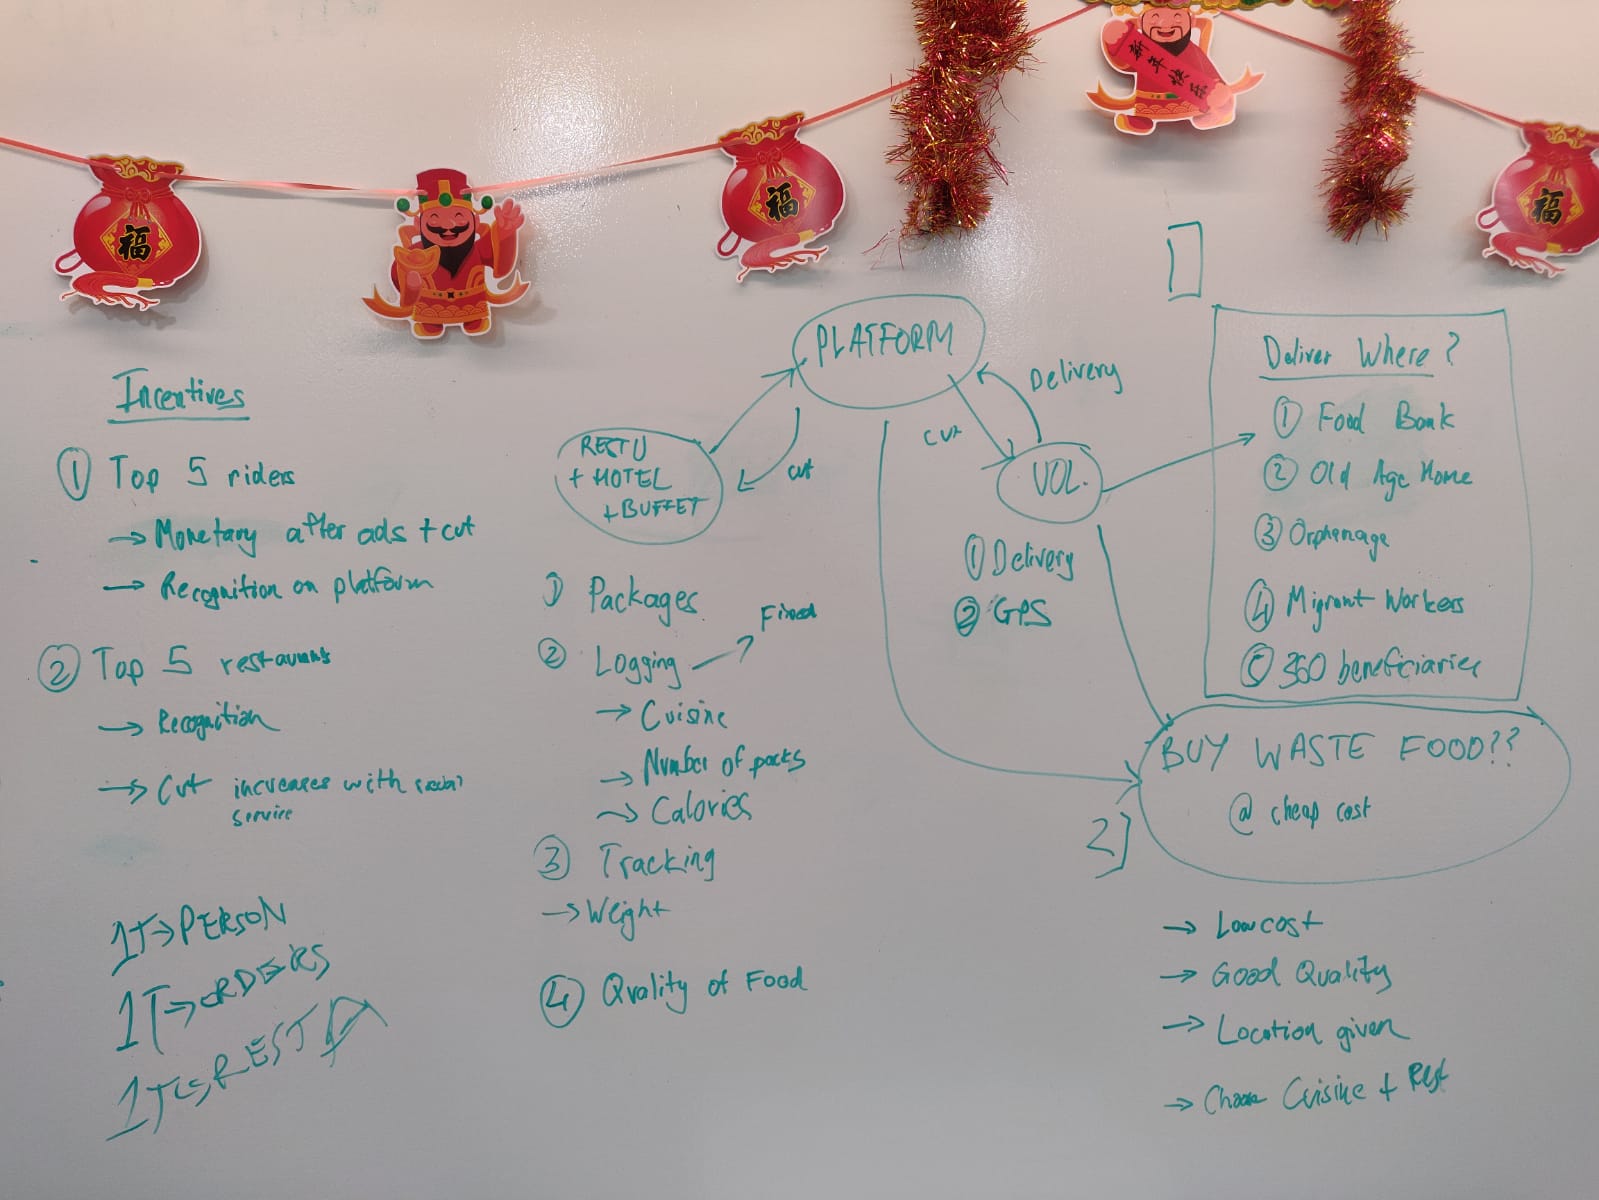 福
福
新年快乐
福
Incentives
① Top 5 riders
→ Monetary after ads + cut
→ Recognition on platform
② Top 5 restaurants
→ Recognition
→ Cut increases with social
service
1T→PERSON
1T→ORDERS
1T→REST
PLATFORM
Delivery
cut
cut
RESTU
+ HOTEL
+BUFFET
VOL.
① Delivery
② GPS
1) Packages
② Logging → Fixed
→ Cuisine
→ Number of packs
→ Calories
③ Tracking
→ Weight
④ Quality of Food
Deliver Where?
① Food Bank
② Old Age Home
③ Orphanage
④ Migrant Workers
⑤ 360 beneficiaries
2)
BUY WASTE FOOD??
@ cheap cost
→ Low cost
→ Good Quality
→ Location given
→ Choose Cuisine + Rest